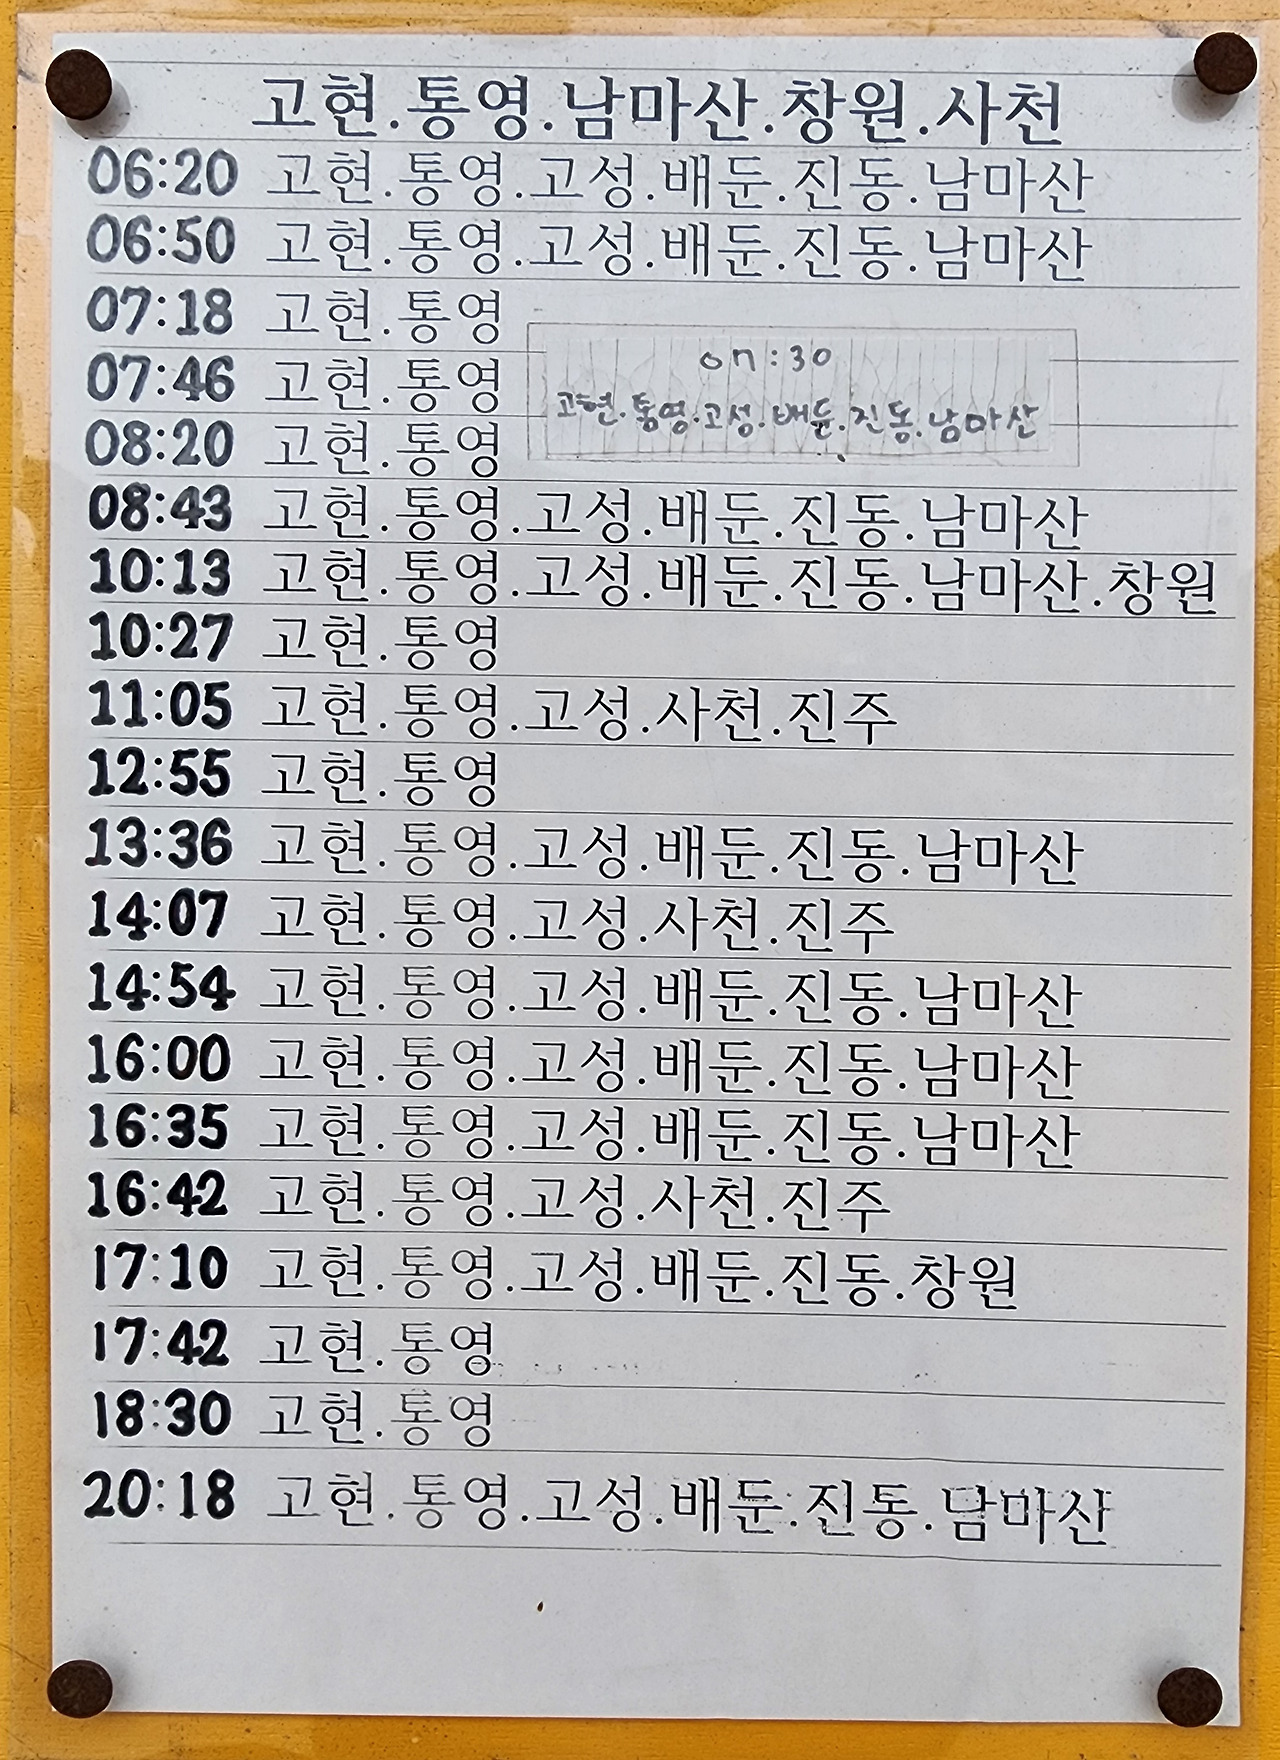 고현.통영.남마산.창원.사천
06:20 고현.통영.고성.배둔.진동.남마산
06:50 고현.통영.고성.배둔.진동.남마산
07:18 고현.통영
07:30
07:46 고현.통영
고현.통영.고성.배둔.진동.남마산
08:20 고현.통영
08:43 고현.통영.고성.배둔.진동.남마산
10:13 고현.통영.고성.배둔.진동.남마산.창원
10:27 고현.통영
11:05 고현.통영.고성.사천.진주
12:55 고현.통영
13:36 고현.통영.고성.배둔.진동.남마산
14:07 고현.통영.고성.사천.진주
14:54 고현.통영.고성.배둔.진동.남마산
16:00 고현.통영.고성.배둔.진동.남마산
16:35 고현.통영.고성.배둔.진동.남마산
16:42 고현.통영.고성.사천.진주
17:10 고현.통영.고성.배둔.진동.창원
17:42 고현.통영
18:30 고현.통영
20:18 고현.통영.고성.배둔.진동.남마산